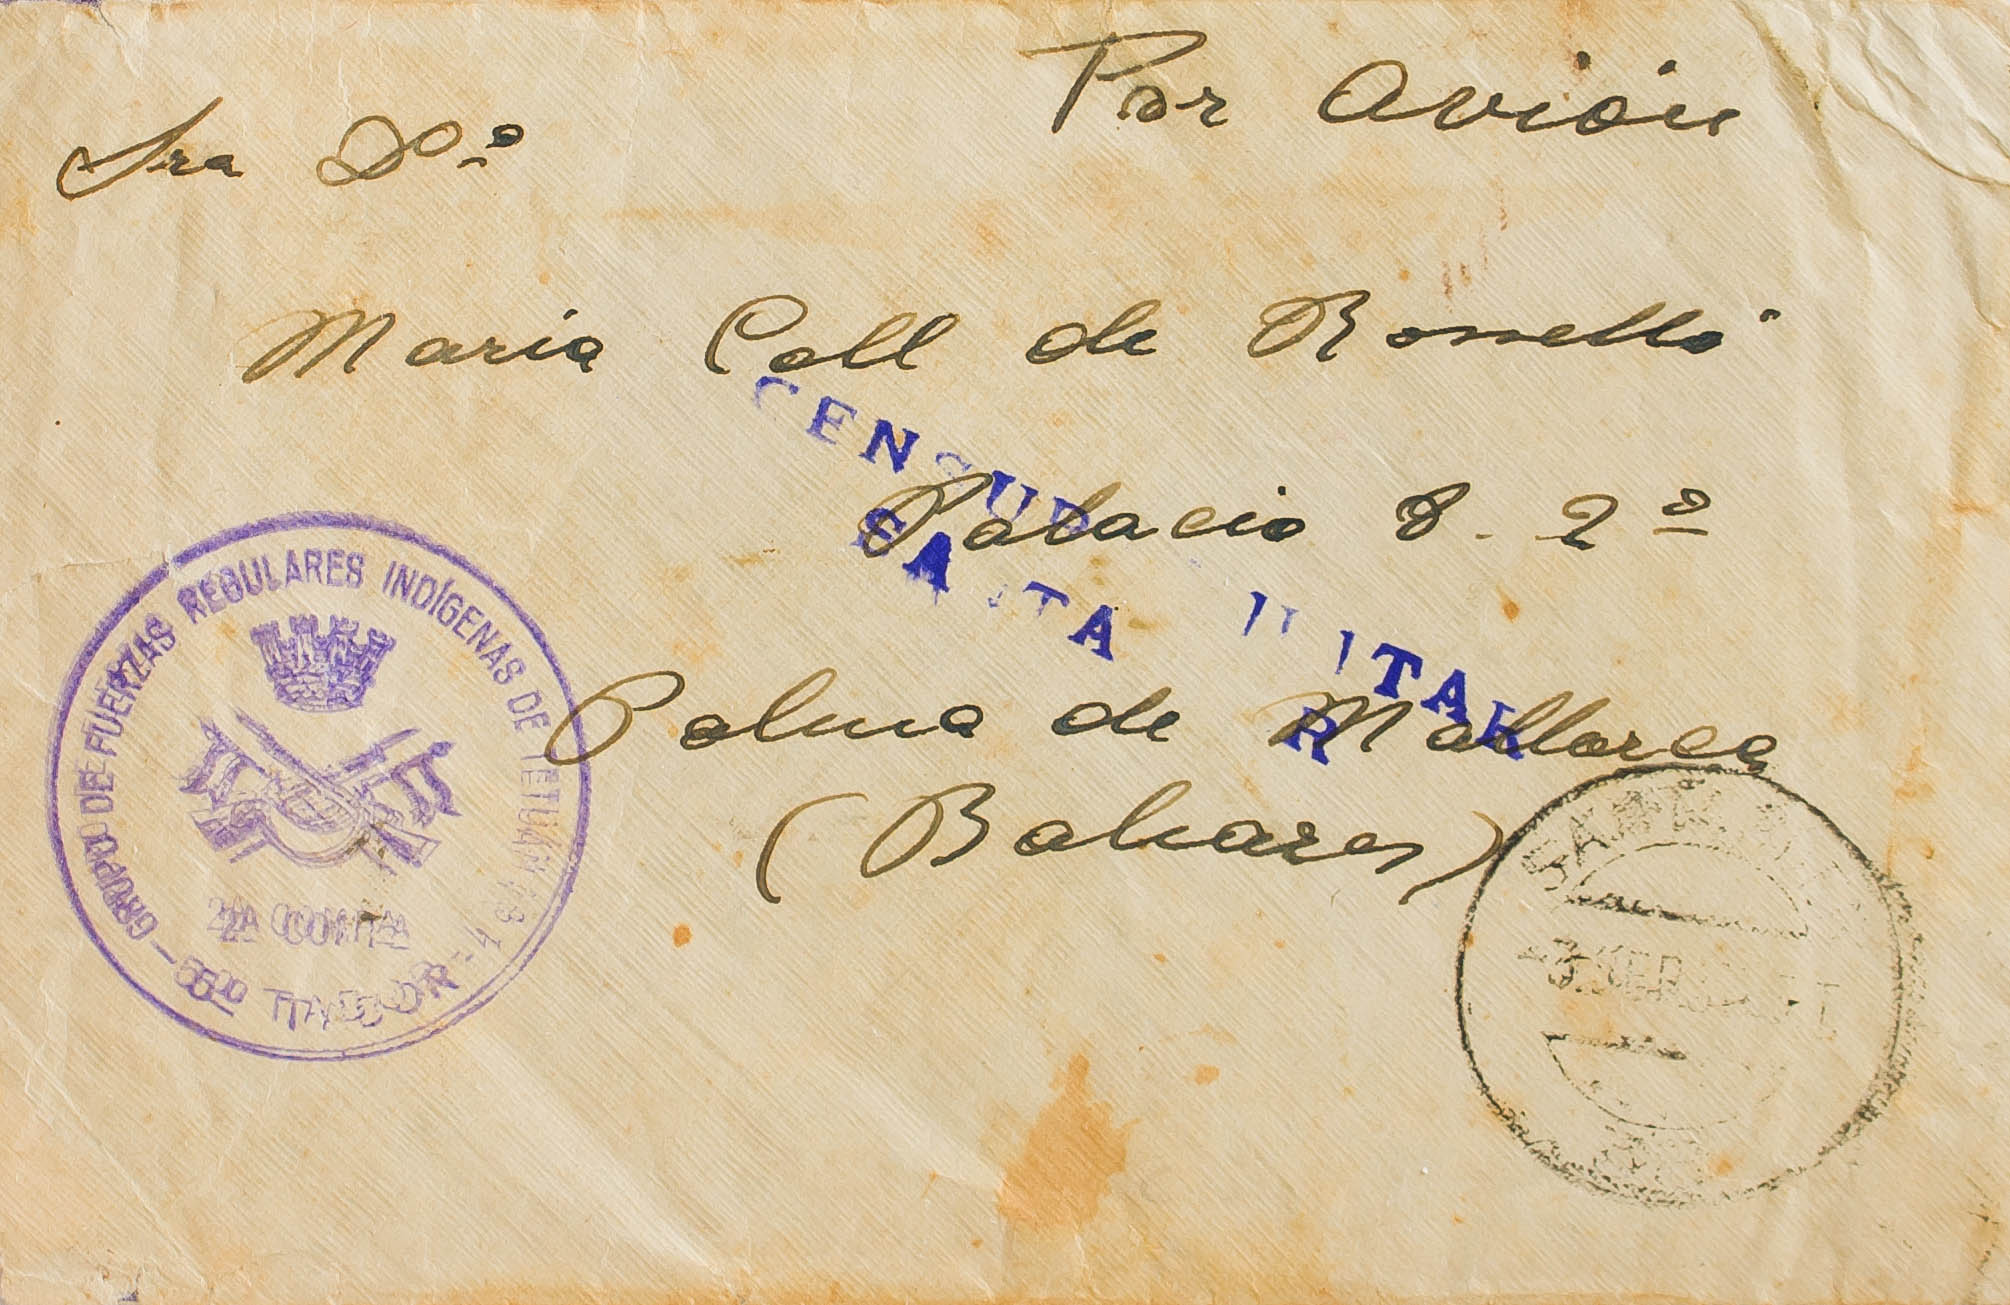 Por avión
Sra Dª
Maria Coll de Rosselló
CENSURA MILITAR
SANTA R
Palacio 8. 2º
Palma de Mallorca
(Baleares)
GRUPO DE FUERZAS REGULARES INDÍGENAS DE TETUÁN Nº 1
2A COMPA
5º TABOR
SANTANDER